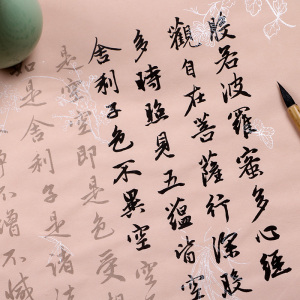 般若波羅蜜多心經
觀自在菩薩行深般
多時照見五蘊皆空
舍利子色不異空空
是空空即是色
如是舍利子是諸法
不增不減